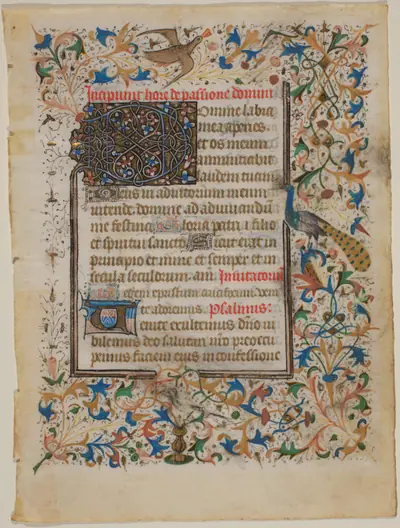 Incipiunt hore de passione domini
Domine labia
mea aperies
et os meum
annuntiabit
laudem tuam
Deus in adiutorium meum
intende. domine ad adiuvandū
me festina Gloria patri et filio
et spiritui sancto Sicut erat in
principio et nunc et semper et in
secula seculorum. am. Invitatoriū
passum crucifixum veni
te adoremus. Psalmus.
Venite exultemus dn̄o iu
bilemus deo salutari nr̄o preoccu
pemus faciem eius in confessione